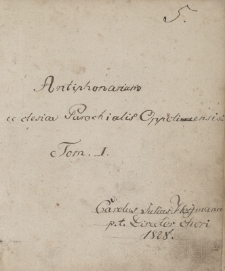 5.
Antiphonarium
ecclesiæ Parochialis Oppoliensis
Tom. I.
Carolus Julius Hoffmann
p.t. Director Chori
1828.